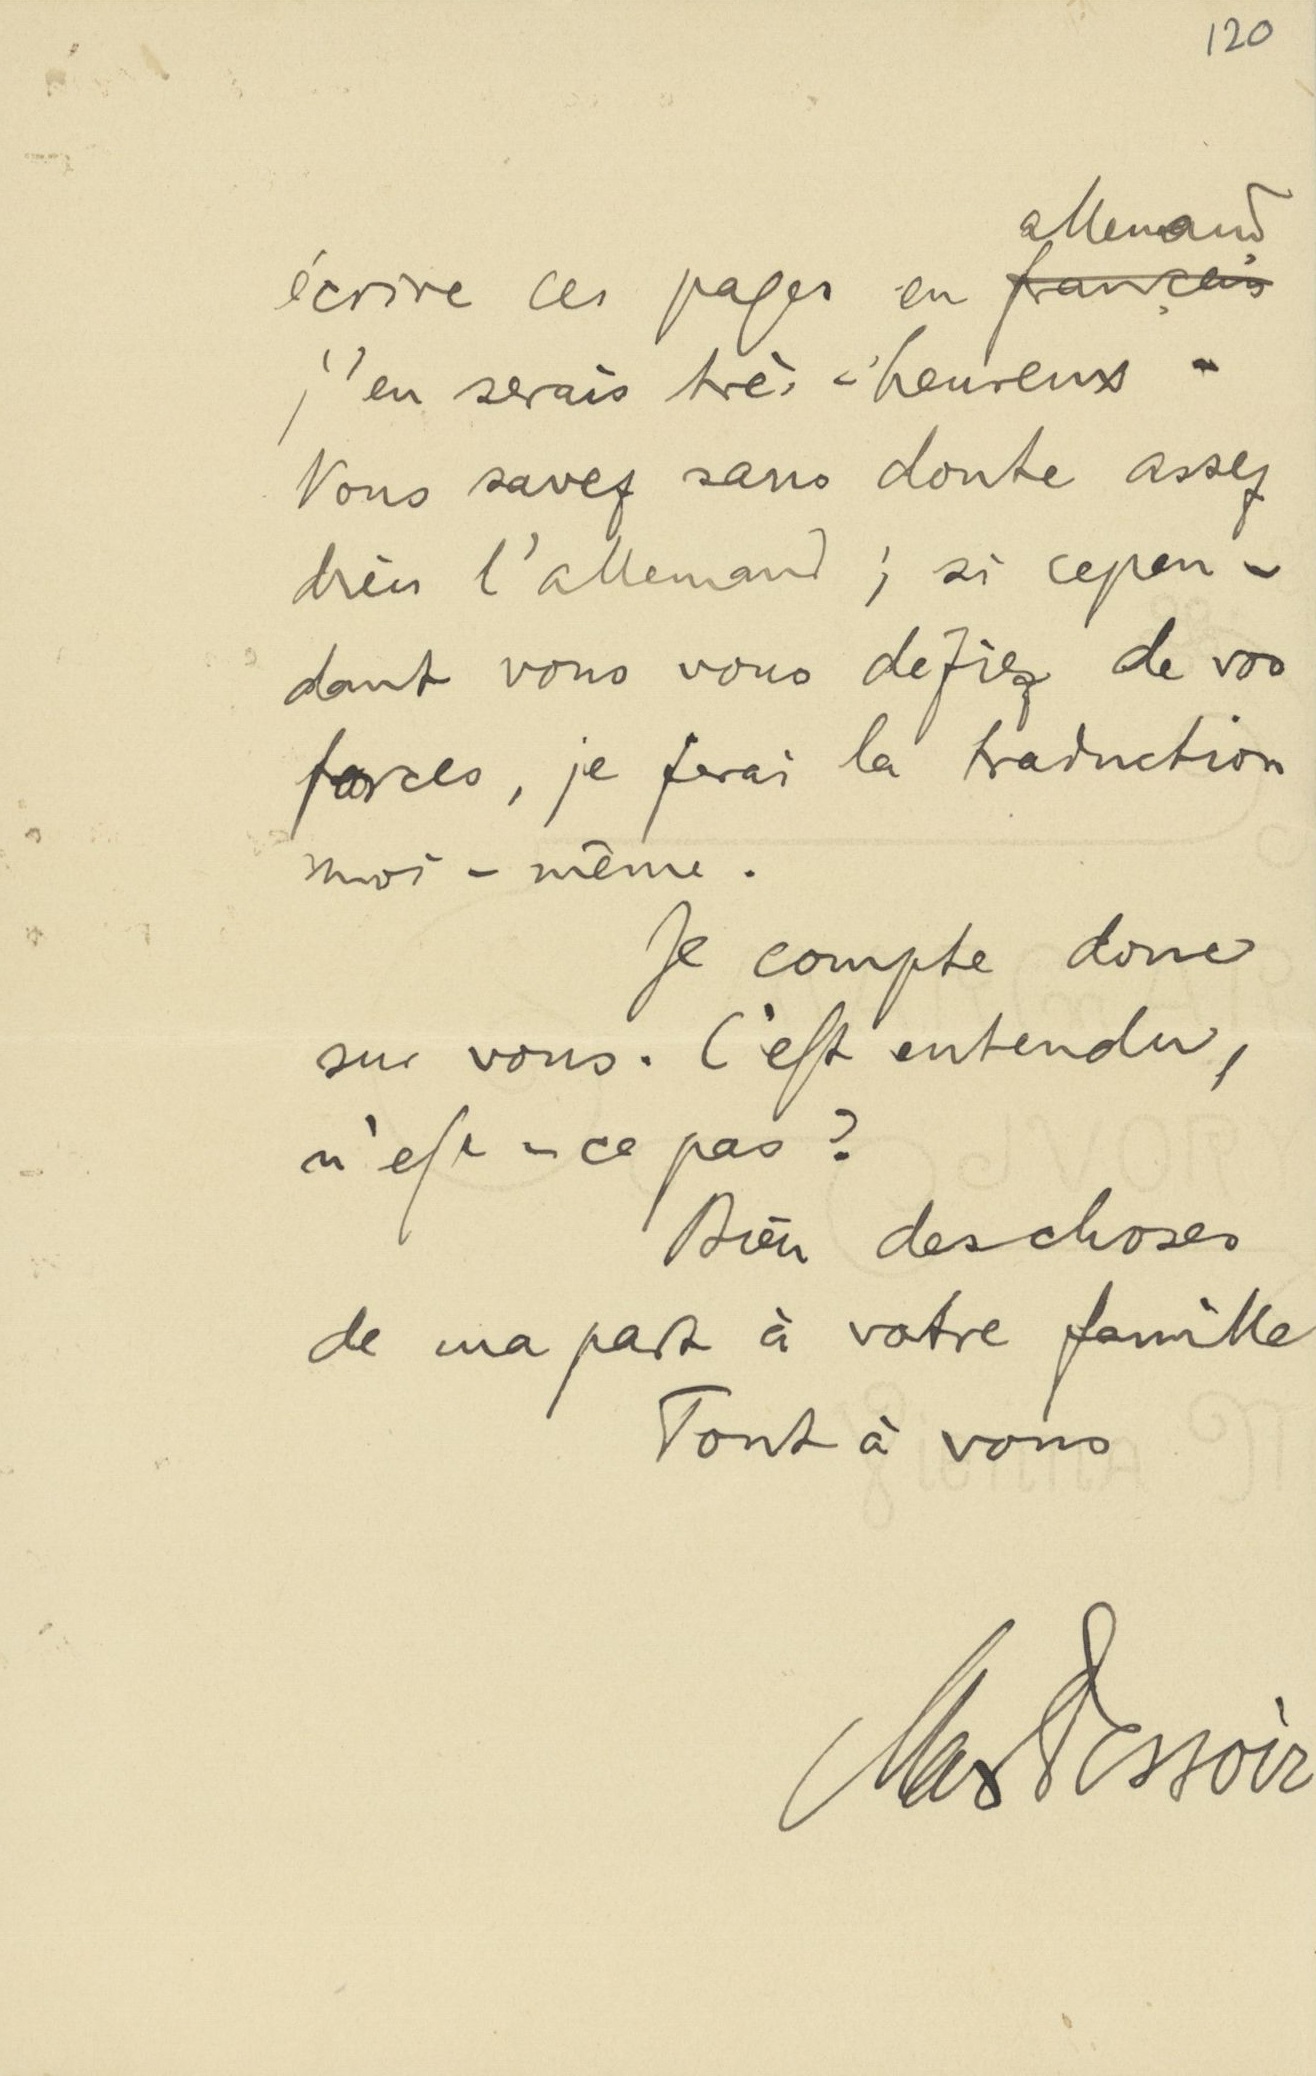 120
allemand
écrire ces pages en français
j'en serais très-heureux -
Vous savez sans doute assez
bien l'allemand ; si cepen-
dant vous vous defiez de vos
forces, je ferai la traduction
moi-même.
Je compte donc
sur vous. C'est entendu,
n'est-ce pas ?
Bien des choses
de ma part à votre famille
Tout à vous
Max Dessoir